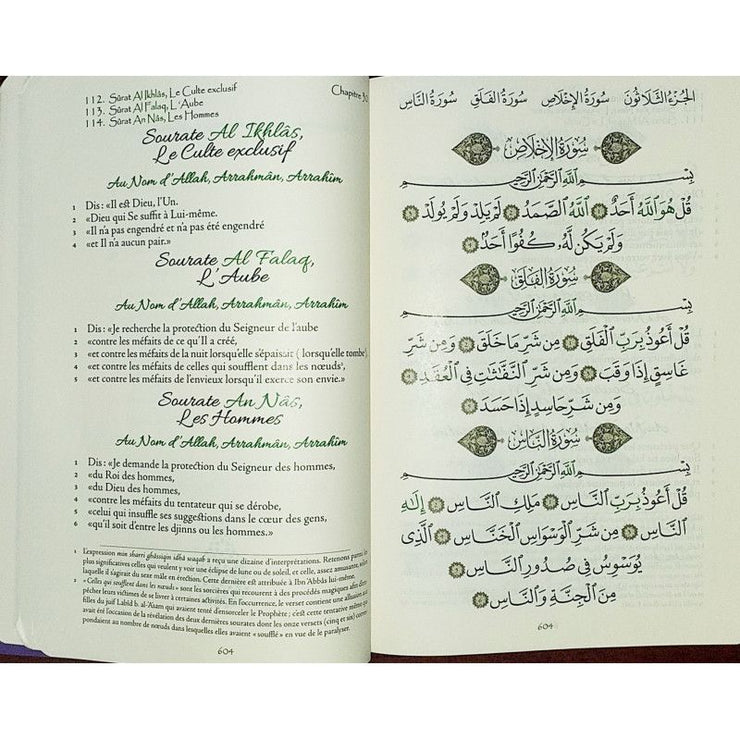 112. Sûrat Al Ikhlâs, Le Culte exclusif
113. Sûrat Al Falaq, L'Aube
114. Sûrat An Nâs, Les Hommes
Chapitre 30
Sourate Al Ikhlâs,
Le Culte exclusif
Au Nom d'Allah, Arrahmân, Arrahîm
1 Dis : «Il est Dieu, l'Un.
2 «Dieu qui Se suffit à Lui-même.
3 «Il n'a pas engendré et n'a pas été engendré
4 «et Il n'a aucun pair.»
Sourate Al Falaq,
L'Aube
Au Nom d'Allah, Arrahmân, Arrahîm
1 Dis : «Je recherche la protection du Seigneur de l'aube
2 «contre les méfaits de ce qu'Il a créé,
3 «et contre les méfaits de la nuit lorsqu'elle s'épaisait ( lorsqu'elle tombe¹),
4 «et contre les méfaits de celles qui soufflent dans les nœuds²,
5 «et contre les méfaits de l'envieux lorsqu'il exerce son envie.»
Sourate An Nâs,
Les Hommes
Au Nom d'Allah, Arrahmân, Arrahîm
1 Dis : «Je demande la protection du Seigneur des hommes,
2 «du Roi des hommes,
3 «du Dieu des hommes,
4 «contre les méfaits du tentateur qui se dérobe,
5 «celui qui insuffle ses suggestions dans le cœur des gens,
6 «qu'il soit d'entre les djinns ou les hommes.»
1 L'expression min sharri ghâssiqin idhâ waqab a reçu une dizaine d'interprétations. Retenons parmi les
plus significatives celles qui veulent y voir une éclipse de lune ou de soleil, et celle, assez amusante, selon
laquelle il s'agirait du sexe mâle en érection. Cette dernière est attribuée à Ibn Abbâs lui-même.
2 « Celles qui soufflent dans les nœuds » sont les sorcières qui recourent à des procédés magiques afin d'em-
pêcher leurs victimes de se livrer à certaines activités. En l'occurrence, le verset contient une allusion aux
filles du juif Labîd b. al-'Asam qui avaient tenté d'ensorceler le Prophète ; c'est cette tentative même qui
avait été l'occasion de la révélation des deux dernières sourates dont les onze versets (cinq et six) corres-
pondaient au nombre de nœuds dans lesquelles elles avaient « soufflé » en vue de le paralyser.
604
الجُزءُ الثَّلَاثُونَ سُورَةُ الإِخْلَاصِ سُورَةُ الفَلَقِ سُورَةُ النَّاسِ
سُورَةُ الإِخْلَاصِ
بِسْمِ اللَّهِ الرَّحْمَٰنِ الرَّحِيمِ
قُلْ هُوَ ٱللَّهُ أَحَدٌ ١ ٱللَّهُ ٱلصَّمَدُ ٢ لَمْ يَلِدْ وَلَمْ يُولَدْ ٣
وَلَمْ يَكُن لَّهُۥ كُفُوًا أَحَدٌ ٤
سُورَةُ الفَلَقِ
بِسْمِ اللَّهِ الرَّحْمَٰنِ الرَّحِيمِ
قُلْ أَعُوذُ بِرَبِّ ٱلْفَلَقِ ١ مِن شَرِّ مَا خَلَقَ ٢ وَمِن شَرِّ
غَاسِقٍ إِذَا وَقَبَ ٣ وَمِن شَرِّ ٱلنَّفَّٰثَٰتِ فِي ٱلْعُقَدِ ٤
وَمِن شَرِّ حَاسِدٍ إِذَا حَسَدَ ٥
سُورَةُ النَّاسِ
بِسْمِ اللَّهِ الرَّحْمَٰنِ الرَّحِيمِ
قُلْ أَعُوذُ بِرَبِّ ٱلنَّاسِ ١ مَلِكِ ٱلنَّاسِ ٢ إِلَٰهِ
ٱلنَّاسِ ٣ مِن شَرِّ ٱلْوَسْوَاسِ ٱلْخَنَّاسِ ٤ ٱلَّذِي
يُوَسْوِسُ فِي صُدُورِ ٱلنَّاسِ ٥
مِنَ ٱلْجِنَّةِ وَٱلنَّاسِ ٦
604